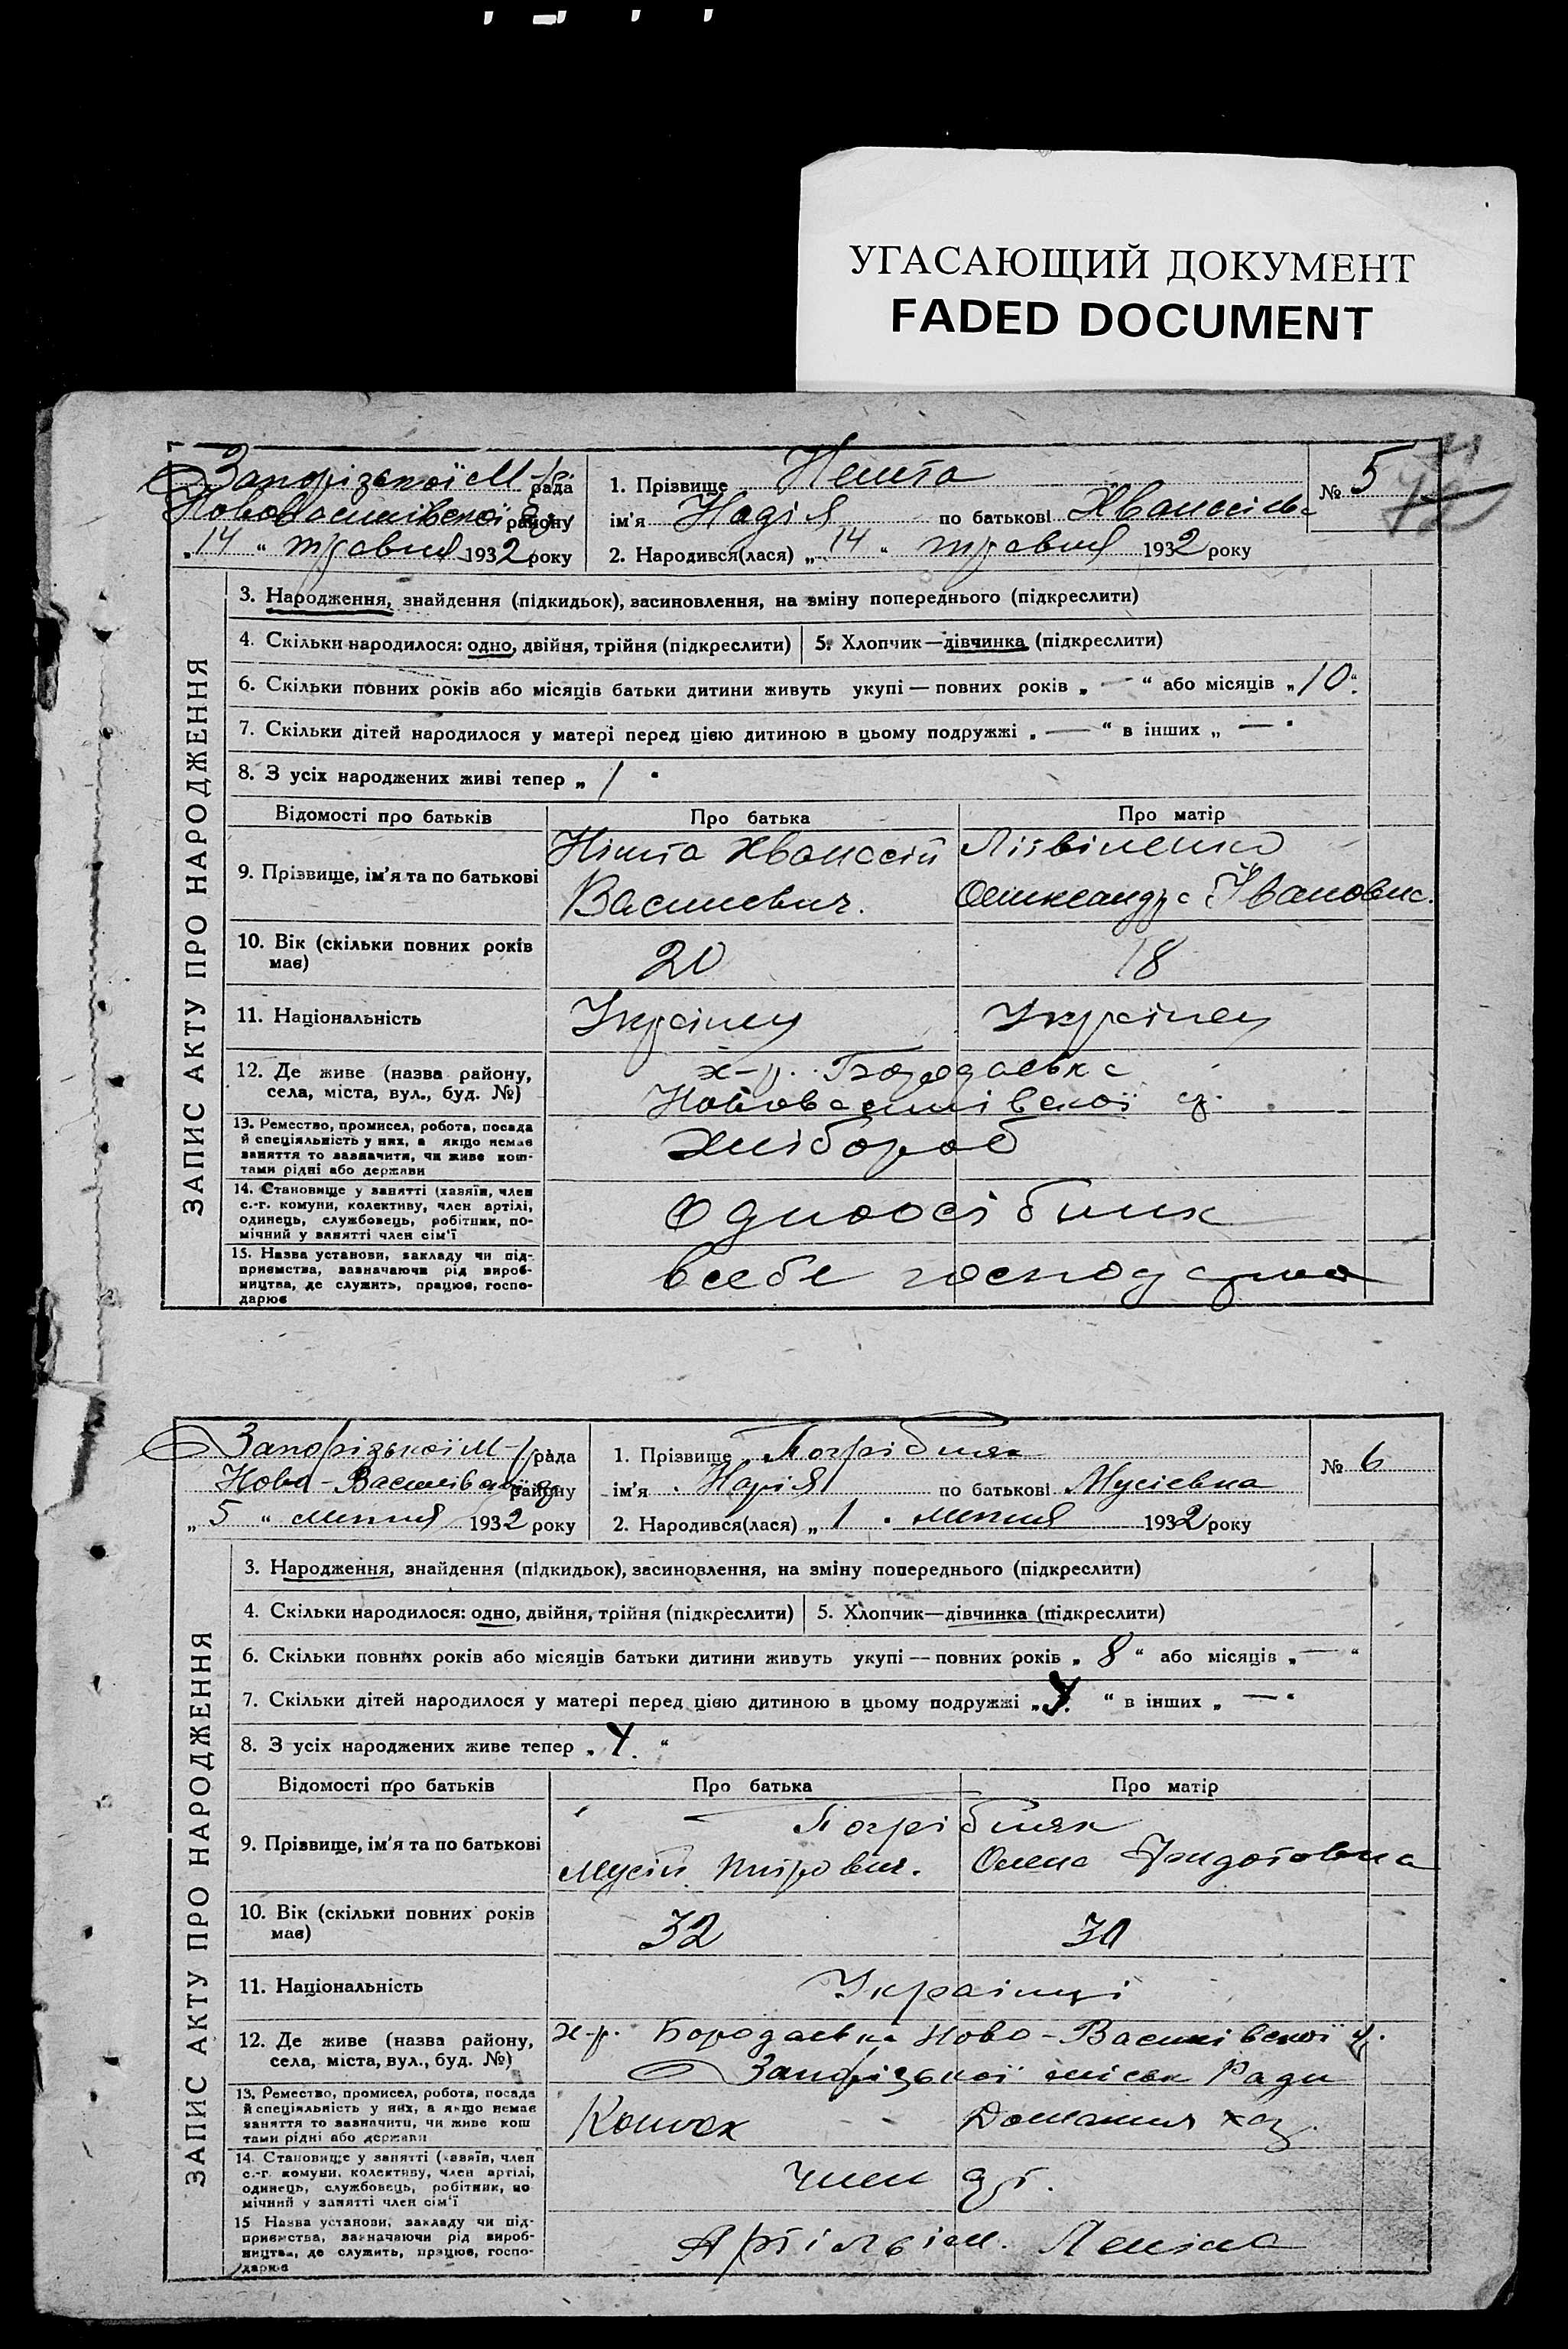 УГАСАЮЩИЙ ДОКУМЕНТ
FADED DOCUMENT
Запорізької М рада
Нововасилівської району
„14“ травня 1932 року
1. Прізвище Нешта
ім'я Надія по батькові
2. Народився(лася) „14“ травня 1932 року
№ 5
ЗАПИС АКТУ ПРО НАРОДЖЕННЯ
3. Народження, знайдення (підкидьок), засиновлення, на зміну попереднього (підкреслити)
4. Скільки народилося: одно, двійня, трійня (підкреслити)
5. Хлопчик—дівчинка (підкреслити)
6. Скільки повних років або місяців батьки дитини живуть укупі — повних років „ — “ або місяців „10“
7. Скільки дітей народилося у матері перед цією дитиною в цьому подружжі „ — “ в інших „ — “
8. З усіх народжених живі тепер „ 1 “
Відомості про батьків
Про батька
Про матір
9. Прізвище, ім'я та по батькові
Нішта Хванасій
Василевич.
Літвіненко
Олександра Івановна.
10. Вік (скільки повних років
має)
20
18
11. Національність
Українец
Українец
12. Де живе (назва району,
села, міста, вул., буд. №)
х-р. Бородаєвка
Нововасилівської
13. Ремество, промисел, робота, посада
й спеціяльність у них, а якщо немає
заняття то зазначити, чи живе кош-
тами рідні або держави
Хлібороб
14. Становище у занятті (хазяїн, член
с.-г. комуни, колективу, член артілі,
одинець, службовець, робітник, по-
мічний у занятті член сім'ї
Одноосібник
15. Назва установи, закладу чи під-
приємства, зазначаючи рід вироб-
ництва, де служить, працює, госпо-
дарює
в себе господарство
Запорізької М рада
Ново-Василівської району
„5“ липня 1932 року
1. Прізвище Погрібняк
ім'я Марія по батькові Мусієвна
2. Народився(лася) „1“ липня 1932 року
№ 6
ЗАПИС АКТУ ПРО НАРОДЖЕННЯ
3. Народження, знайдення (підкидьок), засиновлення, на зміну попереднього (підкреслити)
4. Скільки народилося: одно, двійня, трійня (підкреслити)
5. Хлопчик—дівчинка (підкреслити)
6. Скільки повних років або місяців батьки дитини живуть укупі — повних років „ 8 “ або місяців „ — “
7. Скільки дітей народилося у матері перед цією дитиною в цьому подружжі „ “ в інших „ — “
8. З усіх народжених живе тепер „ 4. “
Відомості про батьків
Про батька
Про матір
9. Прізвище, ім'я та по батькові
Погрібняк
Мусій Петрович.
Олена
10. Вік (скільки повних років
має)
32
30
11. Національність
Українці
12. Де живе (назва району,
села, міста, вул., буд. №)
х-р. Бородаєвка Ново-Василівської
Запорізької міськ Ради
13. Ремество, промисел, робота, посада
й спеціяльність у них, а якщо немає
заняття то зазначити, чи живе кош
тами рідні або держави
Конюх
Домашня хаз.
14. Становище у занятті (хазяїн, член
с.-г. комуни, колективу, член артілі,
одинець, службовець, робітник, по
мічний у занятті член сім'ї
член арт.
15 Назва установи, закладу чи під-
приємства, зазначаючи рід вироб-
ництва, де служить, працює, госпо-
дарює
Артіль ім. Леніна